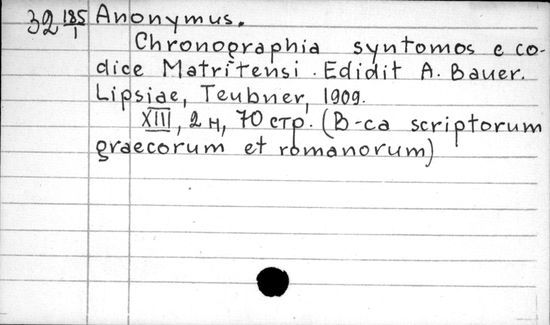 32 185/1 Anonymus.
Chronographia syntomos e co-
dice Matritensi. Edidit A. Bauer.
Lipsiae, Teubner, 1909.
XIII, 2 н, 70 стр. (B-ca scriptorum
graecorum et romanorum)